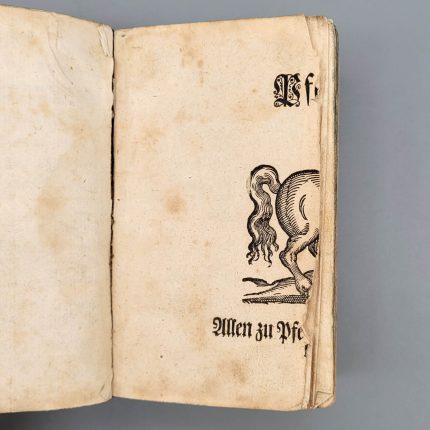 Pf
Allen zu Pfe